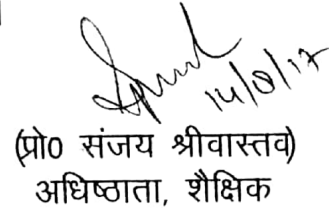 14/8/17
(प्रो0 संजय श्रीवास्तव)
अधिष्ठाता, शैक्षिक